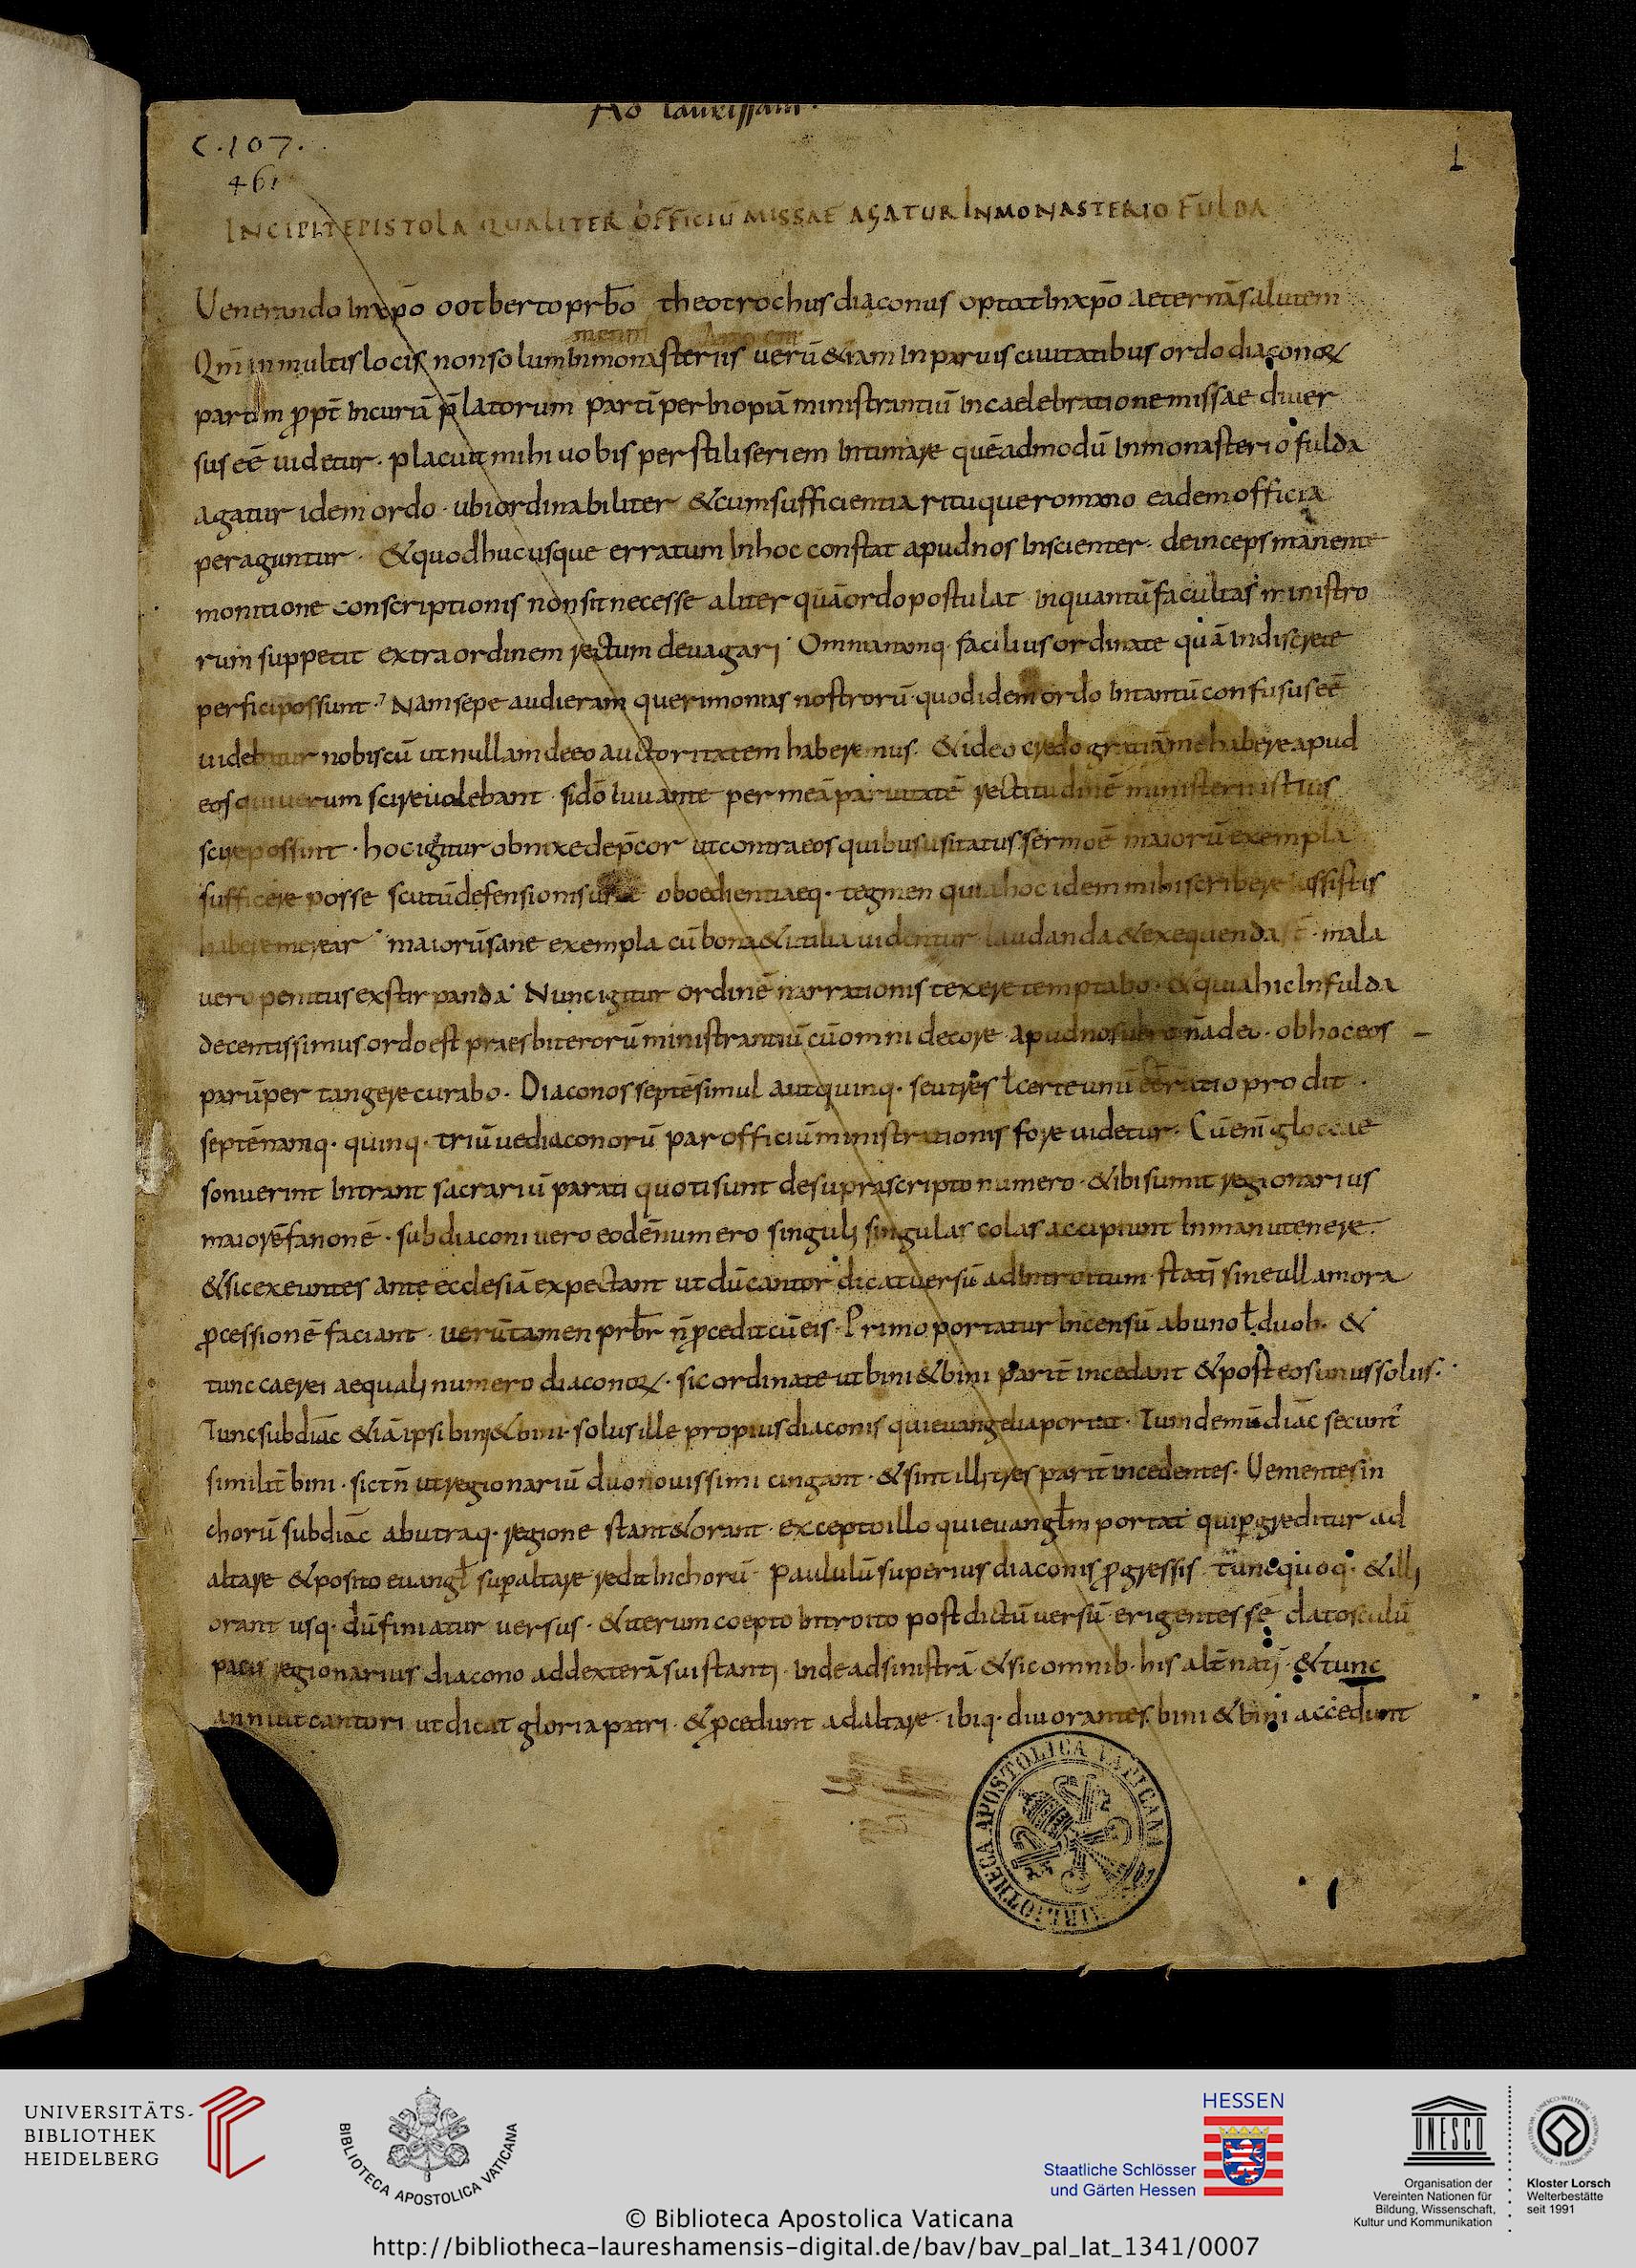 Ad laurissam.
C. 107.
461
1
INCIPIT EPISTOLA QUALITER OFFICIŪ MISSAE AGATUR IN MONASTERIO FULDA
Uenerando in xp̄o ootberto prb̄o theotrochus diaconus optat in xp̄o aeternā salutem
Qm̄ in multis locis non solum in monasteriis uerū & iam in paruis ciuitatibus ordo diaconoꝝ
partim ꝓpt̄ incuriā p̄latorum partī per inopiā ministrantiū in caelebratione missae diuer
sus eē uidetur. placuit mihi uobis per stili seriem intimare quēadmodū in monasterio fulda
agatur idem ordo. ubi ordinabiliter & cum sufficientia rituque romano eadem officia
peraguntur. & quod hucusque erratum in hoc constat apud nos inscienter. deinceps manente
monitione conscriptionis non sit necesse aliter quā ordo postulat inquantū facultas ministro
rum suppetit extra ordinem rectum deuagari. Omnia nanq. facilius ordinate quā indiscrete
perfici possunt. Nam sepe audieram querimonias nostrorū. quod idem ordo in tantū confusus eē
uidebatur nobiscū ut nullam de eo auctoritatem haberemus. & ideo credo gratiā me habere apud
eos qui uerum scire uolebant. si dō iuuante per meā paruitatē rectitudinē ministerii istius
scire possint. hoc igitur obnixe dep̄cor ut contra eos quibus usitatus sermo ē maiorū exempla
sufficere posse scutū defensionis oboedientiaeq. tegmen quia hoc idem mihi scribere iussistis
habere merear. maiorū sane exempla cū bona & utilia uidentur laudanda & exequenda st̄. mala
uero penitus exstirpanda. Nunc igitur ordinē narrationis texere temptabo. & quia hic in fulda
decentissimus ordo est praesbiterorū ministrantiū cū omni decore apud nos obhoc eos
parūper tangere curabo. Diaconos septē simul aut quinq. seu tres ł certe unū ratio prodit.
septē nanq. quinq. triū ue diaconorū par officiū ministrationis fore uidetur. Cū enī gloccae
sonuerint intrant sacrariū parati quoti sunt de suprascripto numero. & ibi sumit regionarius
maiorē fanonē. subdiaconi uero eodē numero singuli singulas colas accipiunt in manu tenere.
& sic exeuntes ante ecclesiā expectant ut dū cantor dicat uersū ad introitum statī sine ulla mora
ꝓcessionē faciant. uerūtamen prb̄r n̄ ꝓcedit cū eis. Primo portatur incensū ab uno ł duob. &
tunc caerei aequali numero diaconoꝝ. sic ordinate ut bini & bini parit̄ incedant & post eos unus solus.
Tunc subdiāc & iā ipsi bini & bini. solus ille propius diaconis qui euangelia portat. Tum demū diāc secunt᷑
similit̄ bini. sic tn̄ ut regionariū duo nouissimi cingant. & sint illi tres parit̄ incedentes. Uenientes in
chorū subdiāc ab utraq. regione stant & orant. excepto illo qui euangłm portat qui ꝑgreditur ad
altare & posito euangł sup altare redit in chorū. Paululū superius diaconis ꝓgressis. tunc quoq. & illi
orant usq. dū finiatur uersus. & iterum coepto introito post dictū uersū erigentes se dat osculū
pacis regionarius diacono ad dexterā sui stanti. inde ad sinistrā & sic omnib. his alt̄natī. & tunc
annuit cantori ut dicat gloria patri. & ꝓcedunt ad altare. ibiq. diu orantes bini & bini accedunt
BIBLIOTHECA APOSTOLICA VATICANA
UNIVERSITÄTS-
BIBLIOTHEK
HEIDELBERG
BIBLIOTECA APOSTOLICA VATICANA
HESSEN
Staatliche Schlösser
und Gärten Hessen
UNESCO
Organisation der
Vereinten Nationen für
Bildung, Wissenschaft,
Kultur und Kommunikation
Kloster Lorsch
Welterbestätte
seit 1991
© Biblioteca Apostolica Vaticana
http://bibliotheca-laureshamensis-digital.de/bav/bav_pal_lat_1341/0007